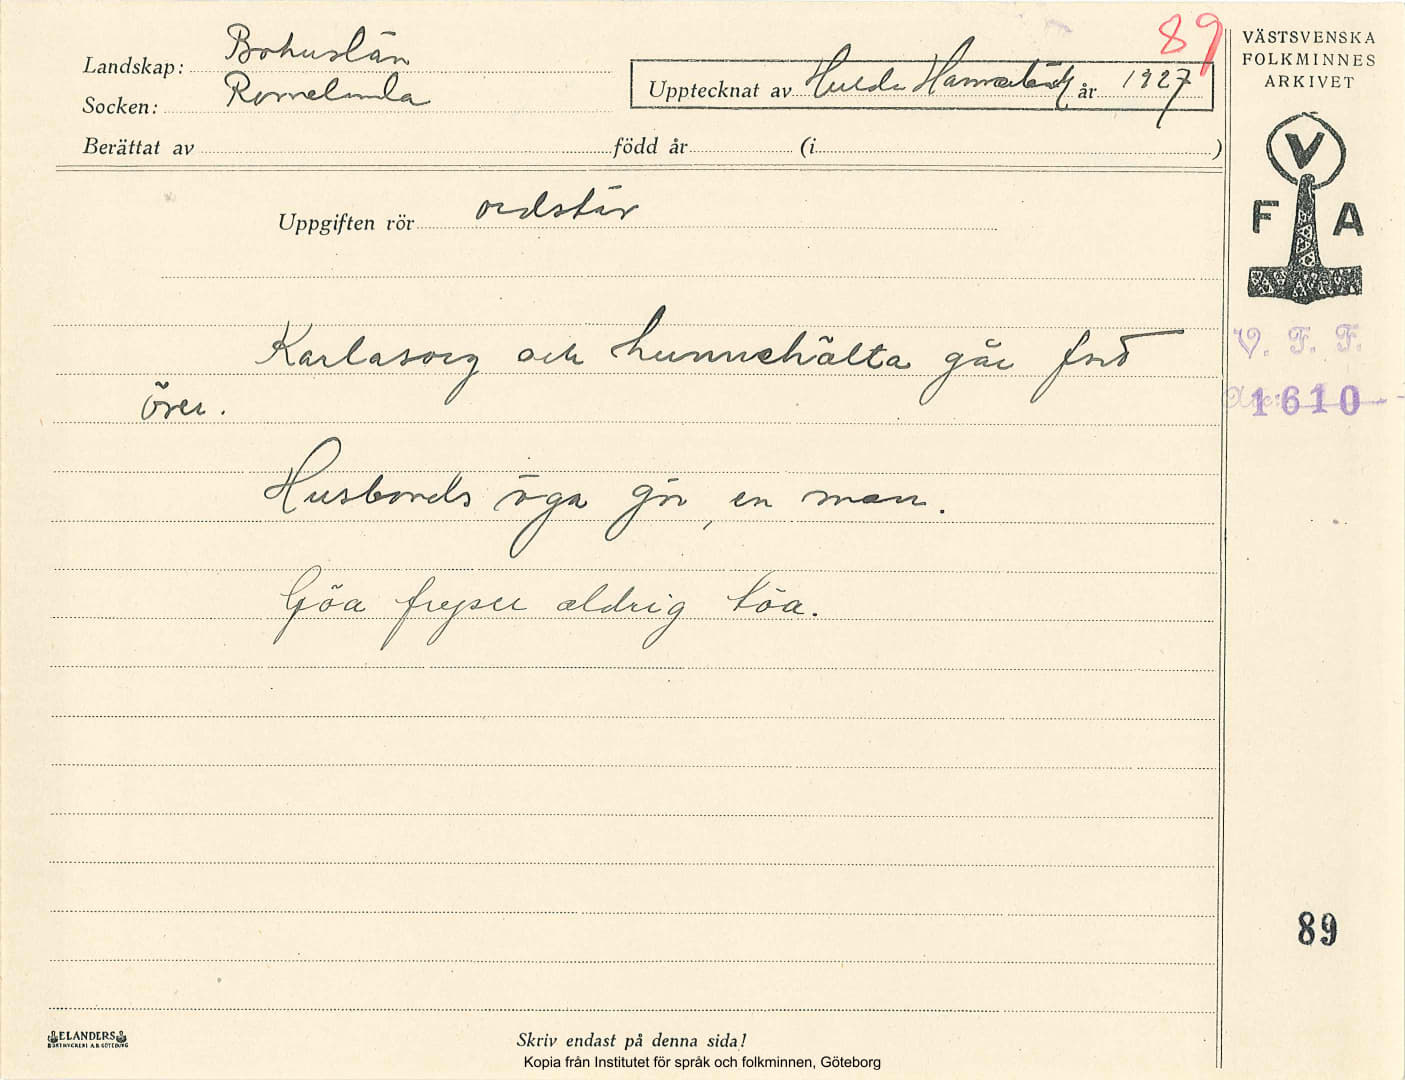 89
Landskap: Bohuslän
Socken: Romelanda
Upptecknat av Hulda Hammarbäck år 1927
Berättat av född år (i )
VÄSTSVENSKA
FOLKMINNES
ARKIVET
V
F A
Uppgiften rör ordstäv
V. F. F.
1610
Karlasorg och hunnehälta går fort
över.
Husbonds öga gör en man.
Göa fryser aldrig töa.
89
ELANDERS
BOKTRYCKERI A.B. GÖTEBORG
Skriv endast på denna sida!
Kopia från Institutet för språk och folkminnen, Göteborg